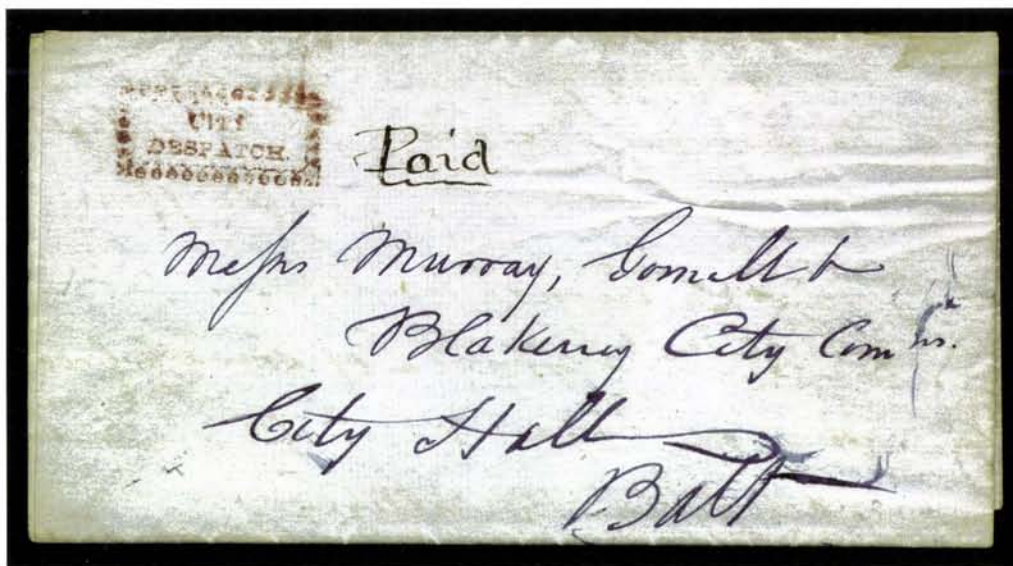 CITY
DESPATCH.
Paid
Messrs Murray, Gomell &
Blakeney City Comrs.
City Hall
Balt